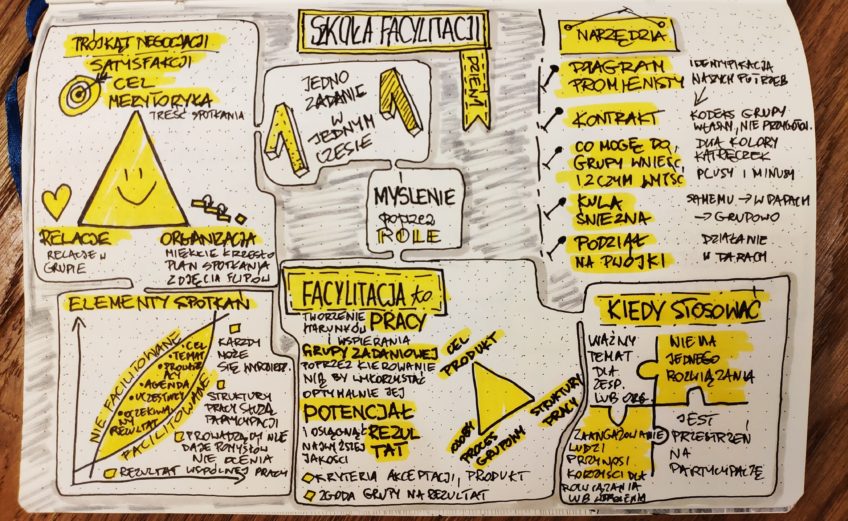 SZKOŁA FACYLITACJI
DZIEŃ 1
TRÓJKĄT NEGOCJACJI
SATYSFAKCJI
CEL
MERYTORYKA
TREŚĆ SPOTKANIA
RELACJE
RELACJE W
GRUPIE
ORGANIZACJA
MIĘKKIE KRZESŁO
PLAN SPOTKANIA
ZDJĘCIA FLIPÓW
JEDNO
ZADANIE
W
JEDNYM
CZESIE
1
1
MYŚLENIE
POPRZEZ
ROLE
NARZĘDZIA
DIAGRAM
PROMIENISTY
IDENTYFIKACJA
NASZYCH POTRZEB
KONTRAKT
KODEKS GRUPY
WŁASNY, NIE PRZYGOTOW.
CO MOGĘ DO
GRUPY WNIEŚĆ
I Z CZYM WYJŚĆ
DWA KOLORY
KARTECZEK
PLUSY I MINUSY
KULA
ŚNIEŻNA
SAMEMU → W PARACH
→ GRUPOWO
PODZIAŁ
NA DWÓJKI
DZIAŁANIE
W PARACH
ELEMENTY SPOTKAŃ
NIE FACILITOWANE
• CEL
• TEMAT
• PROWADZ
ĄCY
• AGENDA
• UCZESTNICY
• OCZEKIWA
NY
REZULTAT
FACILITOWANE
KAŻDY
MOŻE
SIĘ WYPOWIEDZ.
STRUKTURY
PRACY SŁUŻĄ
PARTYCYPACJI
PROWADZĄCY NIE
DAJE POMYSŁÓW
NIE OCENIA
REZULTAT WSPÓLNEJ PRACY
FACYLITACJA to
TWORZENIE
WARUNKÓW
I WSPIERANIA
PRACY
GRUPY ZADANIOWEJ
POPRZEZ KIEROWANIE
NIĄ BY WYKORZYSTAĆ
OPTYMALNIE JEJ
POTENCJAŁ
I OSIĄGNĄĆ
NAJWYŻSZEJ
JAKOŚCI
REZUL
TAT
KRYTERIA AKCEPTACJI, PRODUKT
ZGODA GRUPY NA REZULTAT
CEL
PRODUKT
STRUKTURY
PRACY
OSOBY
PROCES
GRUPOWY
KIEDY STOSOWAĆ
WAŻNY
TEMAT
DLA
ZESP.
LUB ORG.
NIE MA
JEDNEGO
ROZWIĄZANIA
ZAANGAŻOWANIE
LUDZI
PRZYNOSI
KORZYŚCI DLA
ROZWIĄZANIA
LUB WDROŻENIA
JEST
PRZESTRZEŃ
NA
PARTYCYPACJĘ